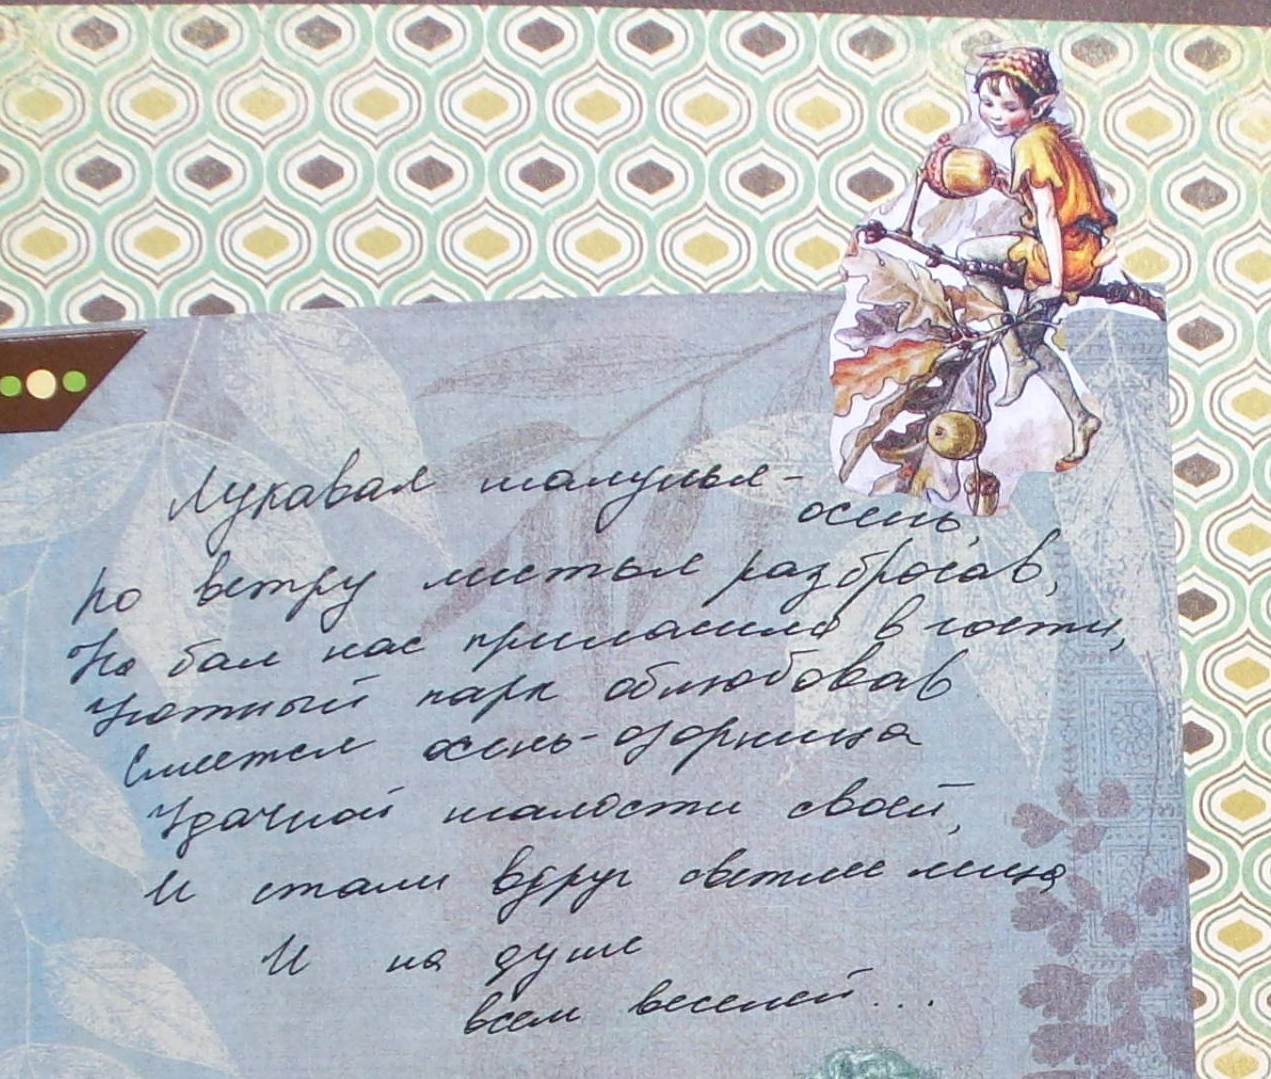 Лукавая шалунья-
осень,
По ветру листья разбросав,
На бал нас пригласила в гости,
Уютный парк облюбовав
Смеется осень-озорница
Удачной шалости своей,
И стали вдруг светлее лица
И на душе
всем веселей...